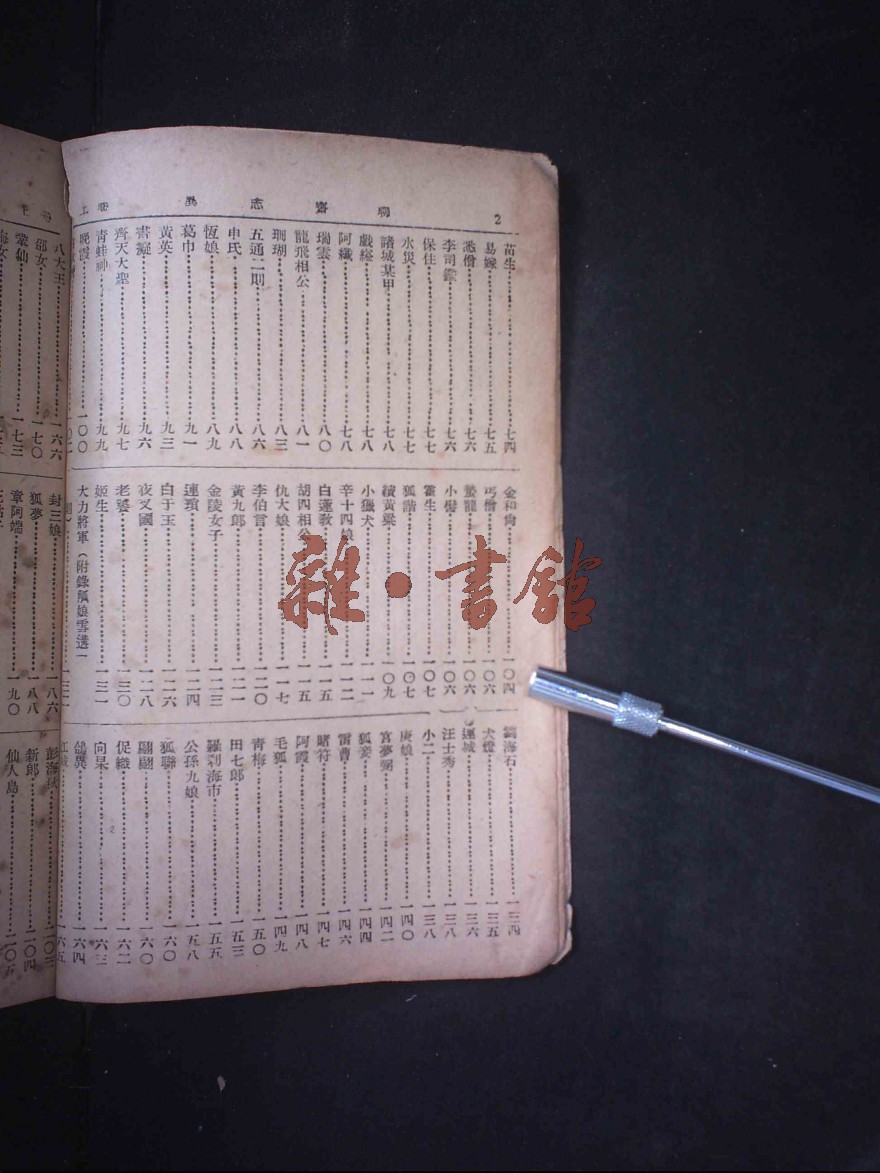 2
聊齋志異 卷上
苗生 七四
易嫁 七五
悉僧 七六
李司鑑 七六
保住 七七
水災 七七
諸城某甲 七八
戲縊 七八
阿纖 七八
瑞雲 八〇
龍飛相公 八一
珊瑚 八三
五通二則 八六
申氏 八八
恆娘 八九
葛巾 九一
黃英 九三
書癡 九六
齊天大聖 九七
青蛙神 九九
晚霞 一〇〇
金和尙 一〇四
丐僧 一〇六
蟄龍 一〇六
小髻 一〇六
霍生 一〇七
狐諧 一〇七
續黃粱 一〇九
小獵犬 一一一
辛十四娘 一一二
白蓮敎 一一五
胡四相公 一一五
仇大娘 一一七
李伯言 一二〇
黃九郎 一二一
金陵女子 一二三
連瑣 一二四
白于玉 一二六
夜叉國 一二八
老饕 一三〇
姬生 一三一
大力將軍（附錄觚賸雪遘）
齕石 一三四
犬燈 一三五
連城 一三六
汪士秀 一三八
小二 一三八
庚娘 一四〇
宮夢弼 一四二
狐妾 一四四
雷曹 一四六
賭符 一四七
阿霞 一四八
毛狐 一四九
靑梅 一五〇
田七郎 一五三
羅刹海市 一五五
公孫九娘 一五八
狐聯 一六〇
翩翩 一六〇
促織 一六二
向杲 一六三
鴿異 一六四
八大王 一六六
邵女 一七〇
鞏仙 一七三
封三娘 一八六
狐夢 一八八
章阿端 一九〇
彭海秋 二〇三
新郎 二〇四
仙人島 二〇五
雜·書館